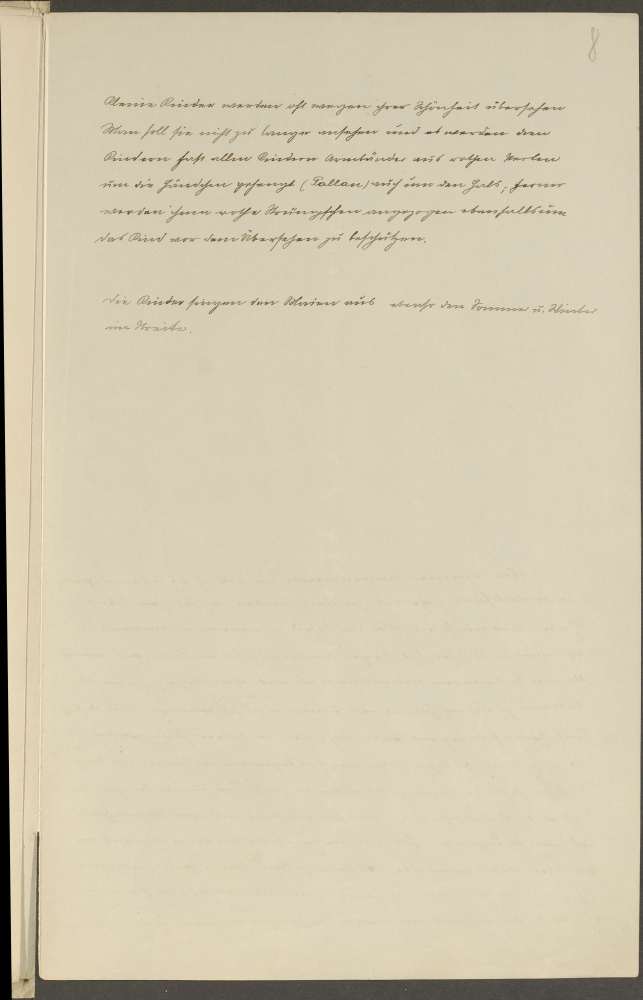 8
Kleine Kinder werden oft wegen ihrer Schönheit übersehen
Man soll sie nicht zu lange ansehen und es werden den
Kindern fast allen Kindern Armbänder aus rothen Perlen
um die Händchen gehängt (Pallan) auch um den Hals, ferner
werden ihnen rothe Strümpfchen angezogen ebenfalls um
das Kind vor dem Übersehen zu beschützen.
Die Kinder singen den Maien aus ebenso den Sommer u. Winter
im Streite.